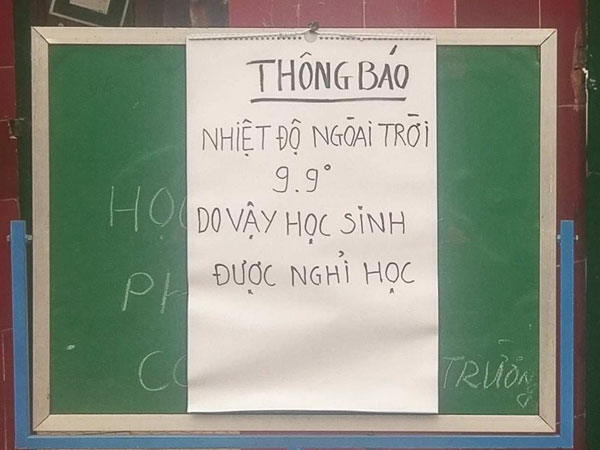 THÔNG BÁO
NHIỆT ĐỘ NGOÀI TRỜI
9.9°
DO VẬY HỌC SINH
ĐƯỢC NGHỈ HỌC
TRƯỜNG